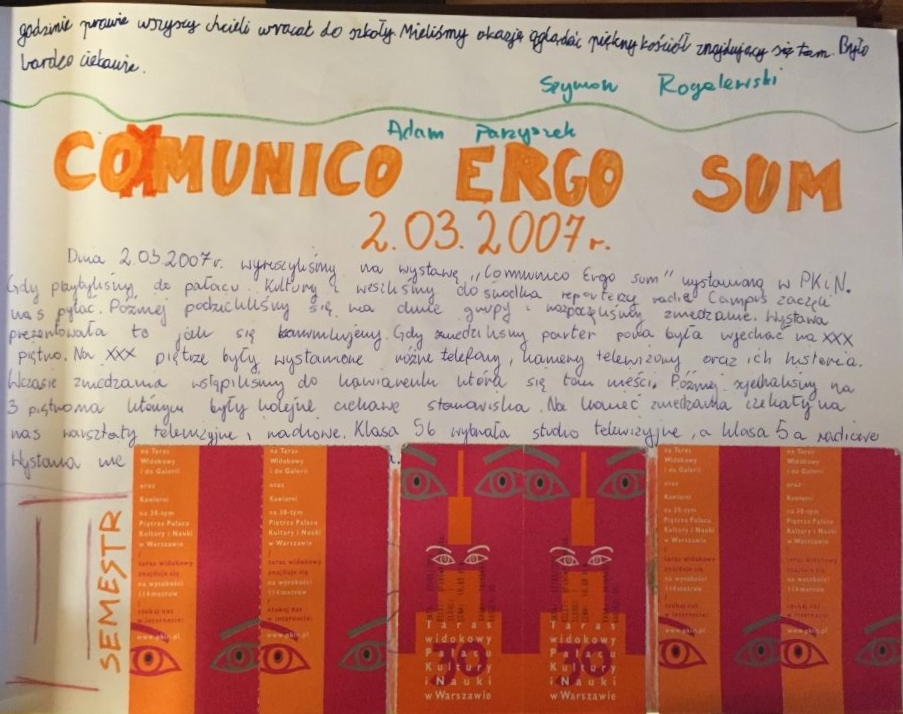 godzinie prawie wszyscy chcieli wracać do szkoły. Mieliśmy okazję oglądać piękny kościół znajdujący się tam. Było
bardzo ciekawie.
Szymon Rogalewski
Adam Parzyszek
COMUNICO ERGO SUM
2.03.2007r.
Dnia 2.03.2007r. wyruszyliśmy na wystawę „Comunico Ergo Sum" wystawioną w PKiN.
Gdy przybyliśmy do pałacu Kultury i weszliśmy do środka reporterzy radia Campus zaczęli
nas pytać. Później podzieliliśmy się na dwie grupy i rozpoczęliśmy zwiedzanie. Wystawa
prezentowała to jak się komunikujemy. Gdy zwiedziliśmy parter pora była wjechać na XXX
piętro. Na XXX piętrze były wystawione różne telefony, kamery telewizory oraz ich historia.
Wczasie zwiedzania wstąpiliśmy do kawiarenki która się tam mieści. Później zjechaliśmy na
3 piętro na którym były kolejne ciekawe stanowiska. Na koniec zwiedzania czekały na
nas warsztaty telewizyjne i radiowe. Klasa 5b wybrała studio telewizyjne, a klasa 5a radiowe
Wystawa nie
SEMESTR
na Taras
Widokowy
i do Galerii
oraz
Kawiarni
na 30-tym
Piętrze Pałacu
Kultury i Nauki
w Warszawie
taras widokowy
znajduje się
na wysokości
114 metrów
szukaj nas
w internecie:
www.pkin.pl
na Taras
Widokowy
i do Galerii
oraz
Kawiarni
na 30-tym
Piętrze Pałacu
Kultury i Nauki
w Warszawie
taras widokowy
znajduje się
na wysokości
114 metrów
szukaj nas
w internecie:
www.pkin.pl
Taras
widokowy
Pałacu
Kultury
i Nauki
w Warszawie
Taras
widokowy
Pałacu
Kultury
i Nauki
w Warszawie
na Taras
Widokowy
i do Galerii
oraz
Kawiarni
na 30-tym
Piętrze Pałacu
Kultury i Nauki
w Warszawie
taras widokowy
znajduje się
na wysokości
114 metrów
szukaj nas
w internecie:
www.pkin.pl
na Taras
Widokowy
i do Galerii
oraz
Kawiarni
na 30-tym
Piętrze Pałacu
Kultury i Nauki
w Warszawie
taras widokowy
znajduje się
na wysokości
114 metrów
szukaj nas
w internecie:
www.pkin.pl